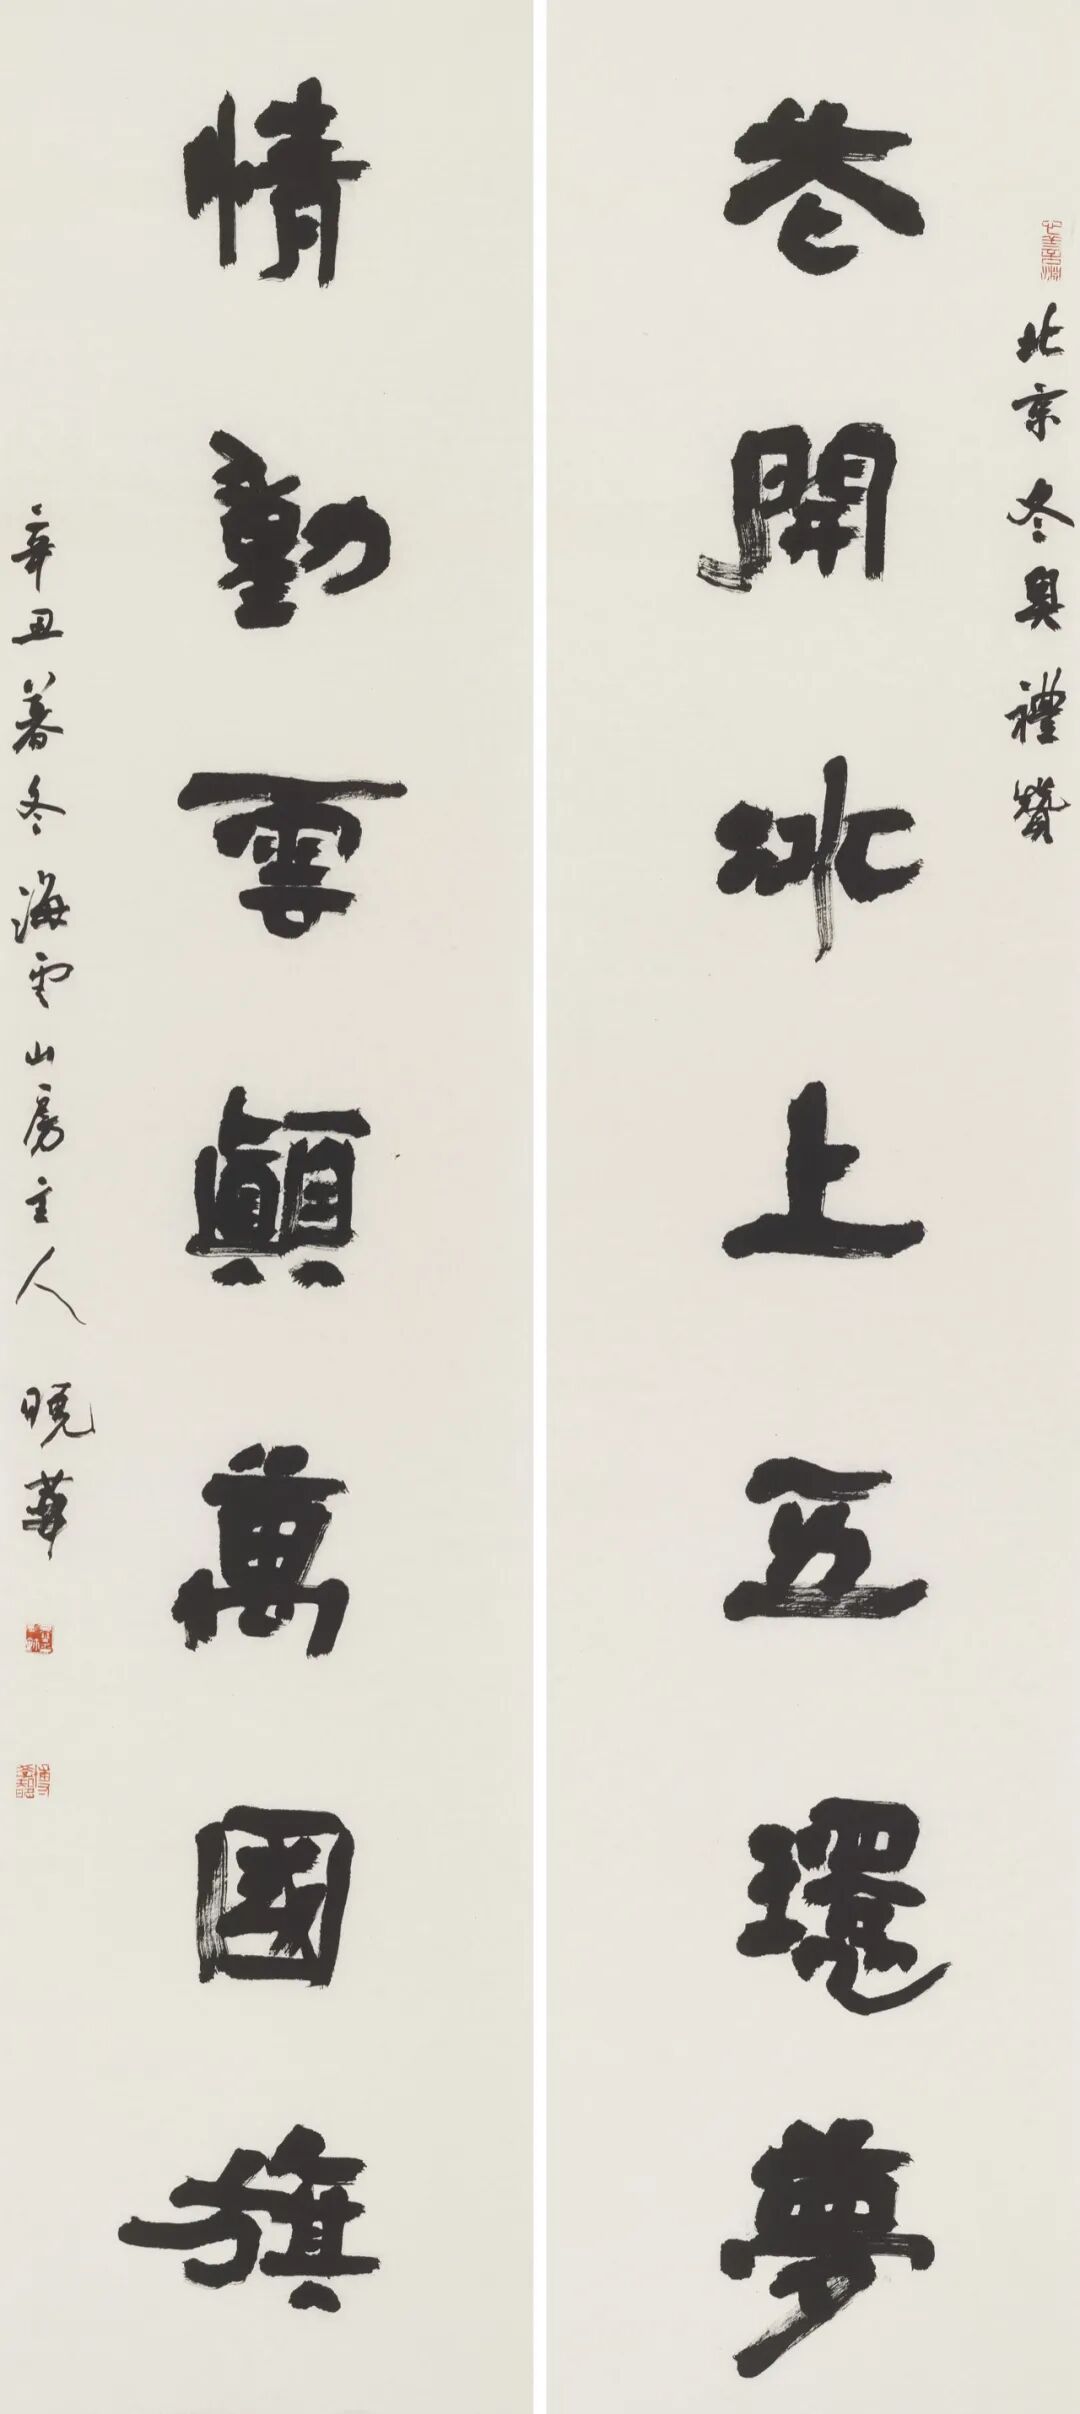 北京冬奧禮贊
花開冰上五環夢
情動雲顛萬國旗
辛丑暮冬海雲山房主人曉華